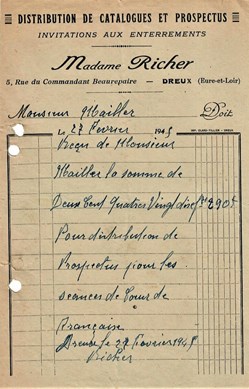 DISTRIBUTION DE CATALOGUES ET PROSPECTUS
INVITATIONS AUX ENTERREMENTS
Madame Richer
5, Rue du Commandant Beaurepaire — DREUX (Eure-et-Loir)
Monsieur Mailler Doit
le 27 Fevrier 1945
Reçu de Monsieur
Mailler la somme de
Deux Cent Quatres Vingt 290
Pour distribution de
Prospectus pour les
séances de
Française
Dreux le 27 Fevrier 1945
Richer